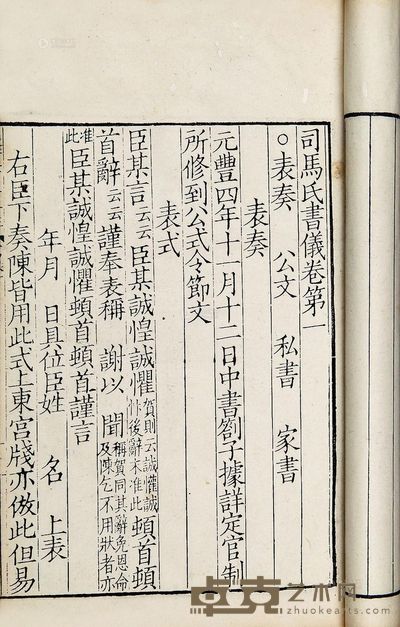 司馬氏書儀卷第一
○表奏 公文 私書 家書
表奏
元豐四年十一月十二日中書劄子據詳定官制
所修到公式令節文
表式
臣某言云云臣某誠惶誠懼賀則云誠懽誠忭後辭末准此頓首頓
首辭云云謹奉表稱 謝以 聞稱賀同其辭免恩命及陳乞不用狀者亦
准此臣某誠惶誠懼頓首頓首謹言
年月 日具位臣姓 名 上表
右臣下奏陳皆用此式上東宮牋亦倣此但易
卓克艺术网
www.zhuokearts.com